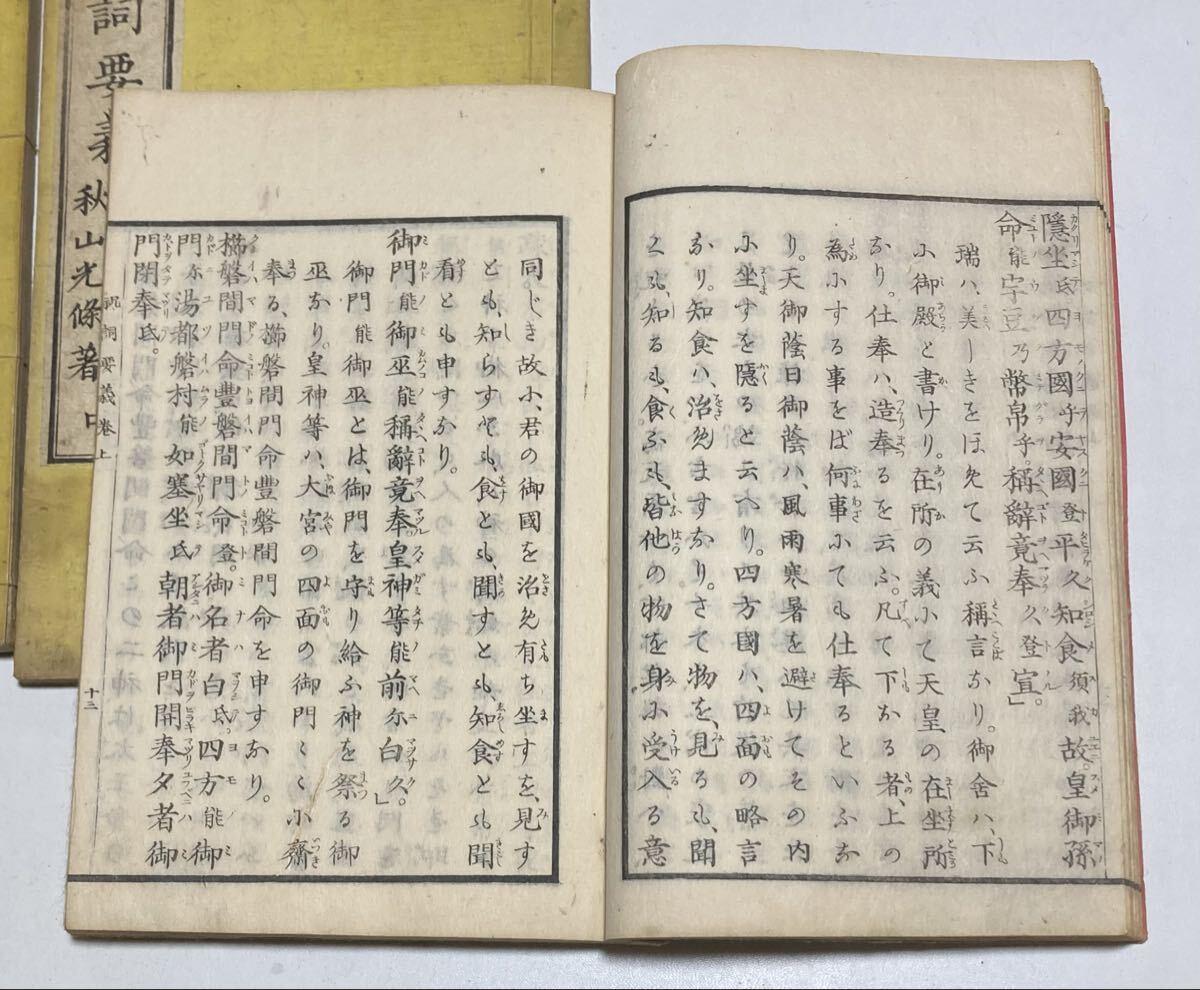 隱坐氐四方國乎安國登平久知食須我故。皇御孫
命能宇豆乃幣帛乎。稱辭竟奉久登宣」
瑞ハ、美しきをほめて云ふ稱言なり。御舍ハ、下
に御殿と書けり。在所の義にて天皇の在坐所
なり。仕奉ハ、造奉るを云ふ。凡て下なる者、上の
為にする事をば何事にても仕奉るといふな
り。天御蔭日御蔭ハ、風雨寒暑を避けてその内
に坐すを隱ると云へり。四方國ハ、四面の略言
なり。知食ハ、治めますなり。さて物を、見るも、聞
くも、知るも、食ふも、皆他の物を身に受入る意
同じき故に、君の御國を治め有ち坐すを、見す
とも、知らすとも、食とも、聞すとも、知食とも聞
看とも申すなり。
御門能御巫能稱辭竟奉。皇神等能前尓白久。」
御門能御巫とは、御門を守り給ふ神を祭る御
巫なり。皇神等ハ、大宮の四面の御門々々に齋
奉る、櫛磐間門命豐磐間門命を申すなり。
櫛磐間門命豐磐間門命登。御名者白氐。四方能御
門尓湯都磐村能如塞坐氐朝者御門開奉夕者御
門閉奉氐。
祝詞要義卷上
十三
詞要義
秋山光條著